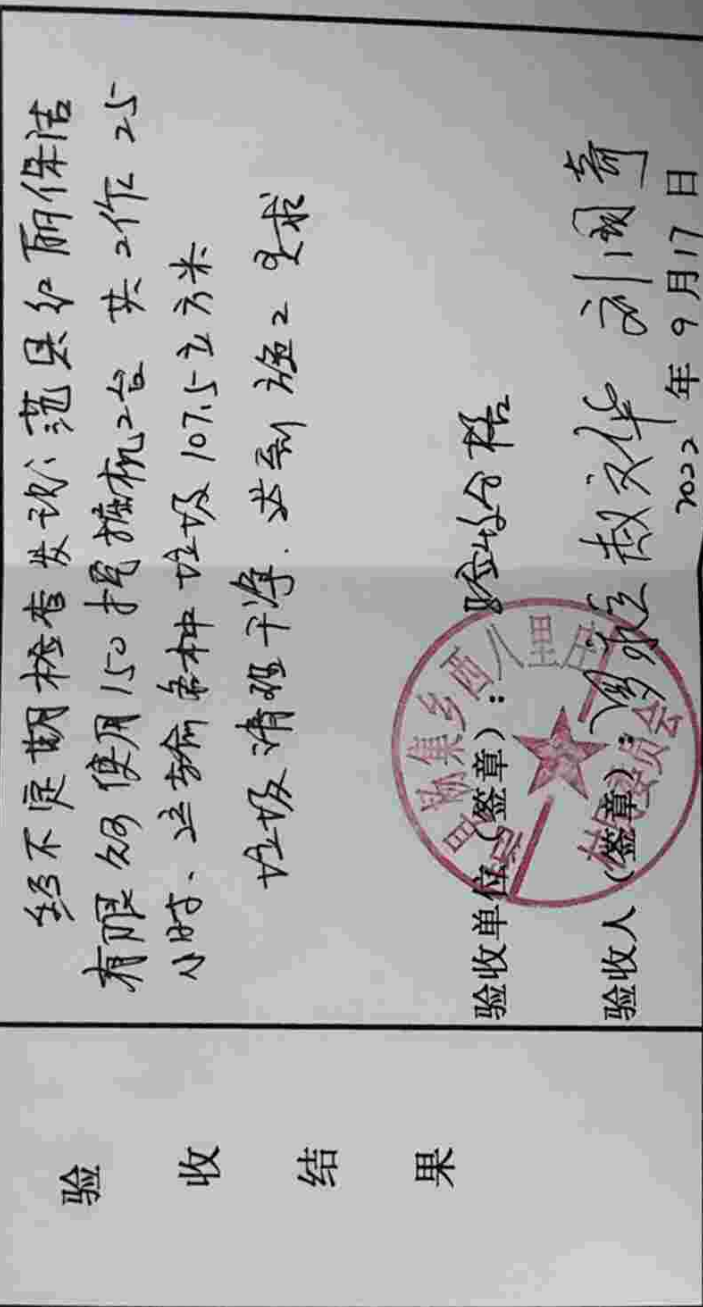 验收结果
经不定期检查发现:范县红丽保洁
有限公司使用150挖掘机2台 共工作25
小时、运输各种垃圾107.5立方米
垃圾清理干净.达到施工要求
验收单位(签章): 验收合格
验收人(签章): 赵文华 刘国奇
2022年9月17日
县 集乡西 村民委员会